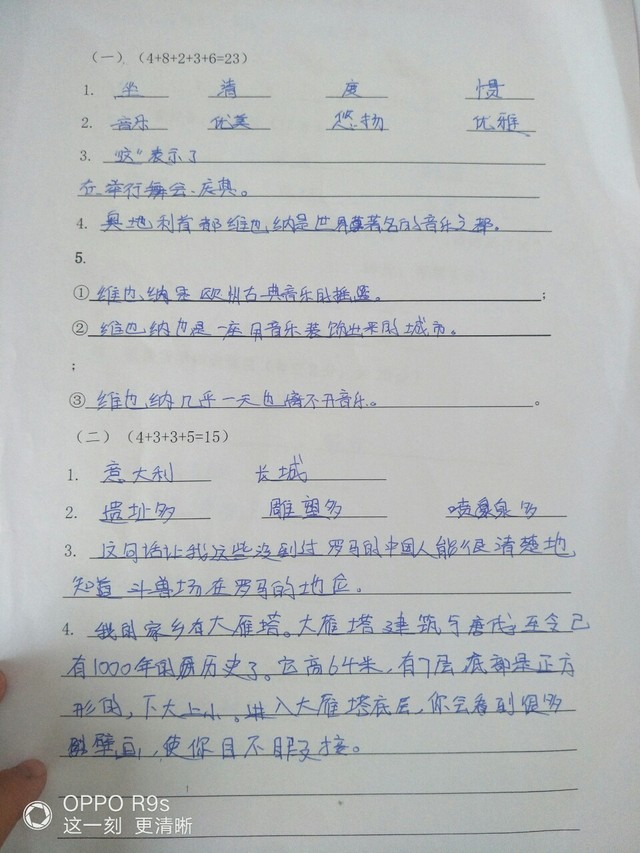 （一）（4+8+2+3+6=23）
1. 坐 清 度 惯
2. 音乐 优美 悠扬 优雅
3. "这"表示了
在举行舞会、庆典。
4. 奥地利首都维也纳是世界著名的音乐之都。
5.
① 维也纳是欧州古典音乐的摇篮。 ；
② 维也纳也是一座用音乐装饰出来的城市。
；
③ 维也纳几乎一天也离不开音乐。 。
（二）（4+3+3+5=15）
1. 意大利 长城
2. 遗址多 雕塑多 喷泉多
3. 这句话让我这些没到过罗马的中国人能很清楚地
知道斗兽场在罗马的地位。
4. 我的家乡有大雁塔。大雁塔建筑与唐代，至今已
有1000年的历史了。它高64米，有7层底部是正方
形的，下大上小。进入大雁塔底层，你会看到很多
壁画，使你目不暇接。
OPPO R9s
这一刻 更清晰